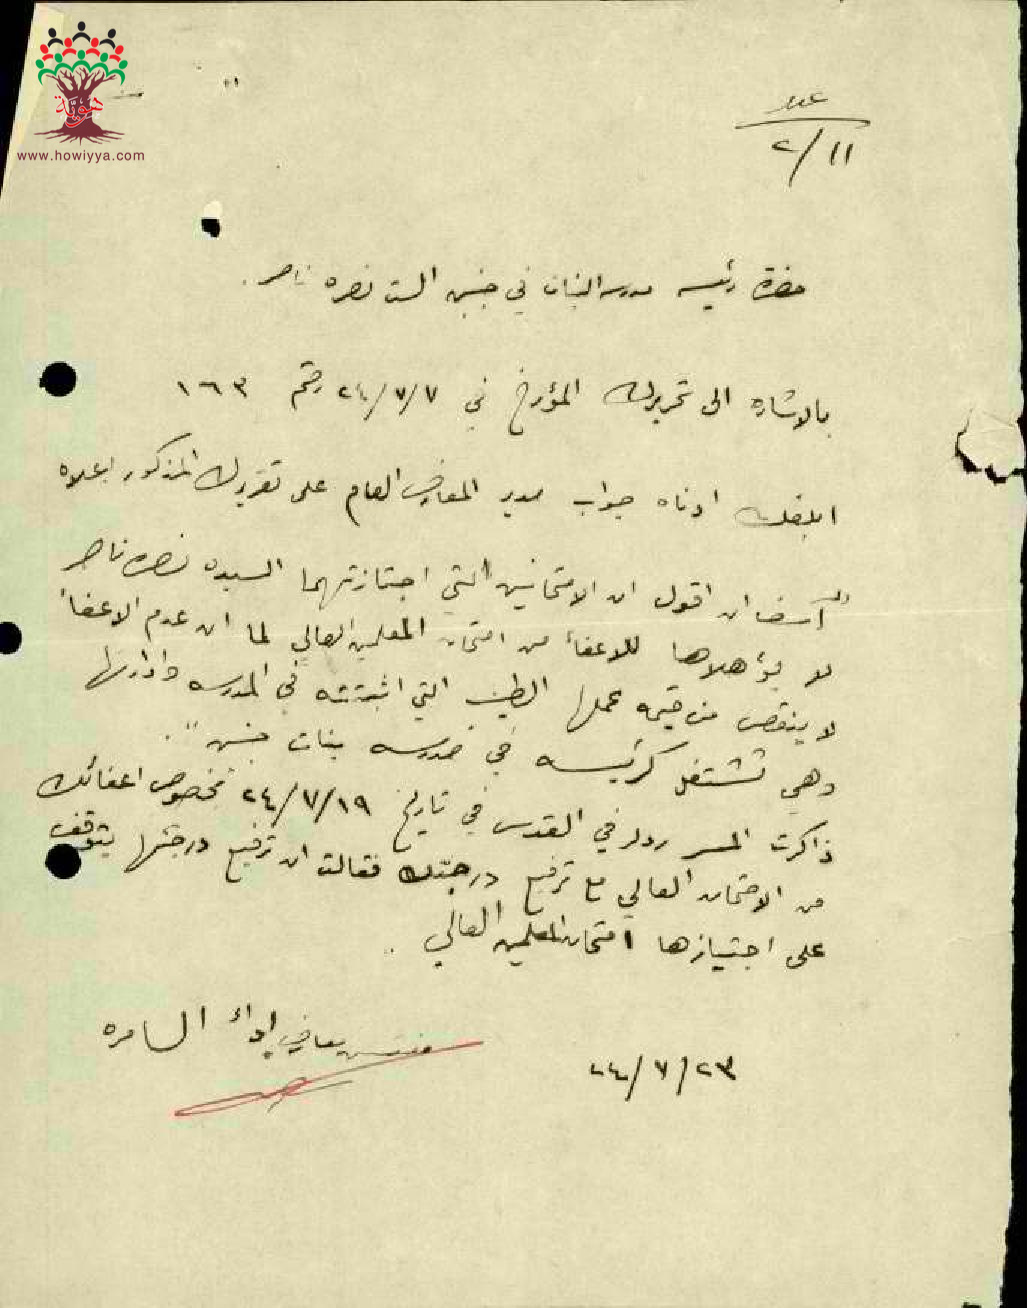 هوية
www.howiyya.com
عدد
١١/٢
حضرة رئيسة مدرسة البنات في جنين الست نصره ناصر .
بالاشاره الى تحريرك المؤرخ في ٢٤/٧/٧ رقم ١٦٣
ابلغك ادناه جواب مدير المعارف العام على تقريرك المذكور اعلاه
" آسف ان اقول ان الامتحانين التي اجتازتهما السيده نصره ناصر
لا يؤهلاها للاعفاء من امتحان المعلمين العالي لما ان عدم الاعفاء
لا ينقص من قيمة عملها الطيب التي اثبتته في المدرسه وادارتها
وهي تشتغل كرئيسه في مدرسه بنات جنين " .
ذاكرت المسز ردلر في القدس في تاريخ ٢٤/٧/١٩ بخصوص اعفائك
من الامتحان العالي مع ترفيع درجتك فقالت ان ترفيع درجتها يتوقف
على اجتيازها امتحان المعلمين العالي .
مفتش معارف لواء السامره
٢٤/٧/٢٣